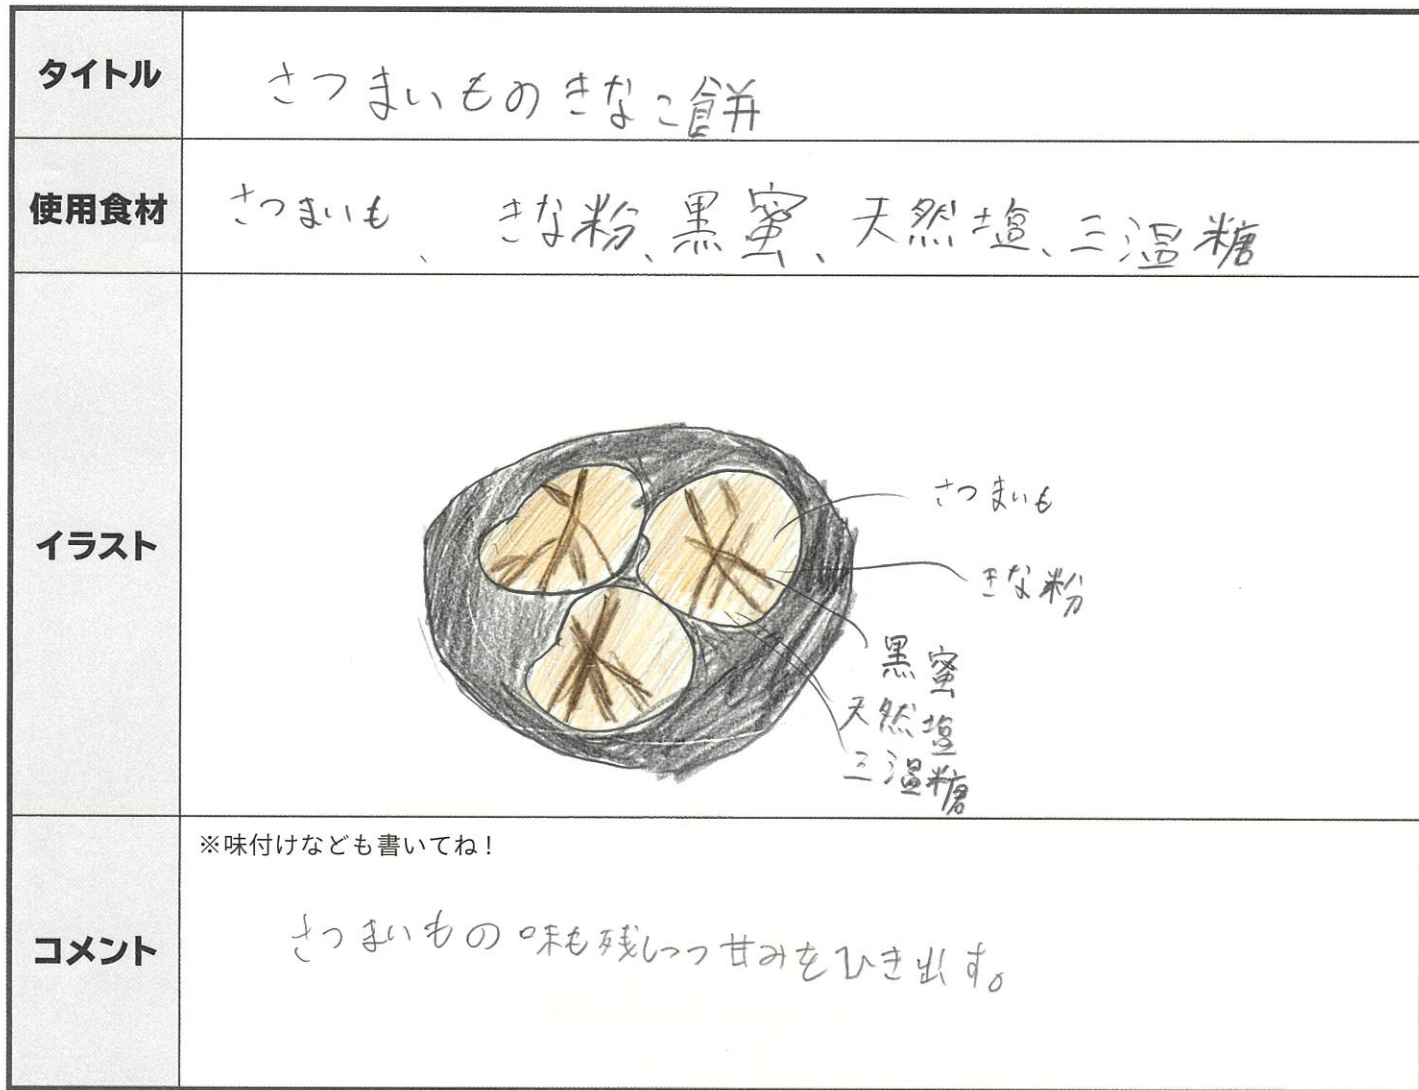 タイトル
さつまいものきなこ餅
使用食材
さつまいも、きな粉、黒蜜、天然塩、三温糖
イラスト
さつまいも
きな粉
黒蜜
天然塩
三温糖
コメント
※味付けなども書いてね！
さつまいもの味も残しつつ甘みをひき出す。